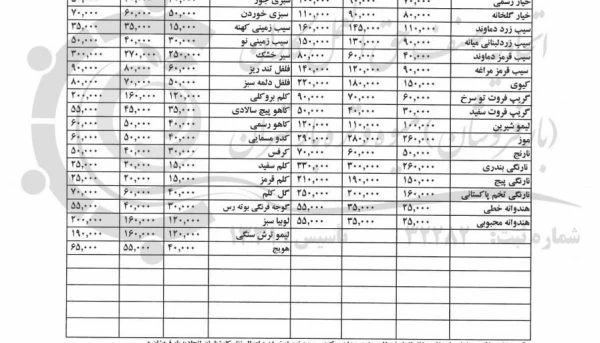 خیار گلخانه ۸۰,۰۰۰ ۹۰,۰۰۰ ۱۱۰,۰۰۰ سبزی خوردن ۵۰,۰۰۰ ۶۰,۰۰۰ ۷۰,۰۰۰
سیب زرد دماوند ۱۱۰,۰۰۰ ۱۴۵,۰۰۰ ۱۶۰,۰۰۰ سیب زمینی کهنه ۱۵,۰۰۰ ۳۵,۰۰۰ ۳۵,۰۰۰
سیب زردلبنانی میانه ۹۰,۰۰۰ ۱۳۰,۰۰۰ ۱۵۰,۰۰۰ سیب زمینی نو ۳۰,۰۰۰ ۴۰,۰۰۰ ۵۰,۰۰۰
سیب قرمز دماوند ۴۰,۰۰۰ ۶۰,۰۰۰ ۸۰,۰۰۰ سیر خشک ۲۵۰,۰۰۰ ۲۷۰,۰۰۰ ۳۰۰,۰۰۰
سیب قرمز مراغه ۹۰,۰۰۰ ۱۲۰,۰۰۰ ۱۴۰,۰۰۰ فلفل تند ریز ۶۰,۰۰۰ ۸۰,۰۰۰ ۹۰,۰۰۰
کیوی ۱۵۰,۰۰۰ ۱۸۰,۰۰۰ ۲۲۰,۰۰۰ فلفل دلمه سبز ۵۰,۰۰۰ ۷۰,۰۰۰ ۸۰,۰۰۰
گریپ فروت تو سرخ ۶۰,۰۰۰ ۷۰,۰۰۰ ۹۰,۰۰۰ کلم بروکلی ۱۲۰,۰۰۰ ۱۶۰,۰۰۰ ۲۰۰,۰۰۰
گریپ فروت سفید ۳۰,۰۰۰ ۴۰,۰۰۰ ۵۰,۰۰۰ کاهو پیچ سالادی ۳۵,۰۰۰ ۴۵,۰۰۰ ۵۵,۰۰۰
لیمو شیرین ۱۰۰,۰۰۰ ۱۱۰,۰۰۰ ۱۲۰,۰۰۰ کاهو رسمی ۴۰,۰۰۰ ۵۰,۰۰۰ ۶۰,۰۰۰
موز ۲۶۰,۰۰۰ ۲۸۰,۰۰۰ ۲۹۰,۰۰۰ کدو مسمایی ۴۰,۰۰۰ ۵۰,۰۰۰ ۶۰,۰۰۰
نارنج ۵۰,۰۰۰ ۶۰,۰۰۰ ۷۰,۰۰۰ کرفس ۳۰,۰۰۰ ۴۰,۰۰۰ ۵۰,۰۰۰
نارنگی بندری ۲۶۰,۰۰۰ ۳۰۰,۰۰۰ ۳۳۰,۰۰۰ کلم سفید ۱۵,۰۰۰ ۲۰,۰۰۰ ۲۵,۰۰۰
نارنگی پیج ۱۵۰,۰۰۰ ۱۹۰,۰۰۰ ۲۱۰,۰۰۰ کلم قرمز ۱۵,۰۰۰ ۲۰,۰۰۰ ۲۵,۰۰۰
نارنگی تخم پاکستانی ۱۶۰,۰۰۰ ۲۰۰,۰۰۰ ۲۵۰,۰۰۰ گل کلم ۴۰,۰۰۰ ۶۰,۰۰۰ ۷۰,۰۰۰
هندوانه خطی ۲۵,۰۰۰ ۳۵,۰۰۰ ۵۵,۰۰۰ گوجه فرنگی بوته رس ۳۰,۰۰۰ ۴۰,۰۰۰ ۵۵,۰۰۰
هندوانه محبوبی ۲۵,۰۰۰ ۳۵,۰۰۰ ۵۵,۰۰۰ لوبیا سبز ۱۲۰,۰۰۰ ۱۶۰,۰۰۰ ۲۰۰,۰۰۰
لیمو ترش سنگی ۱۲۰,۰۰۰ ۱۶۰,۰۰۰ ۱۹۰,۰۰۰
هویج ۴۰,۰۰۰ ۵۵,۰۰۰ ۶۵,۰۰۰
شماره ثبت: ۳۲۲۸۲ تاسیس